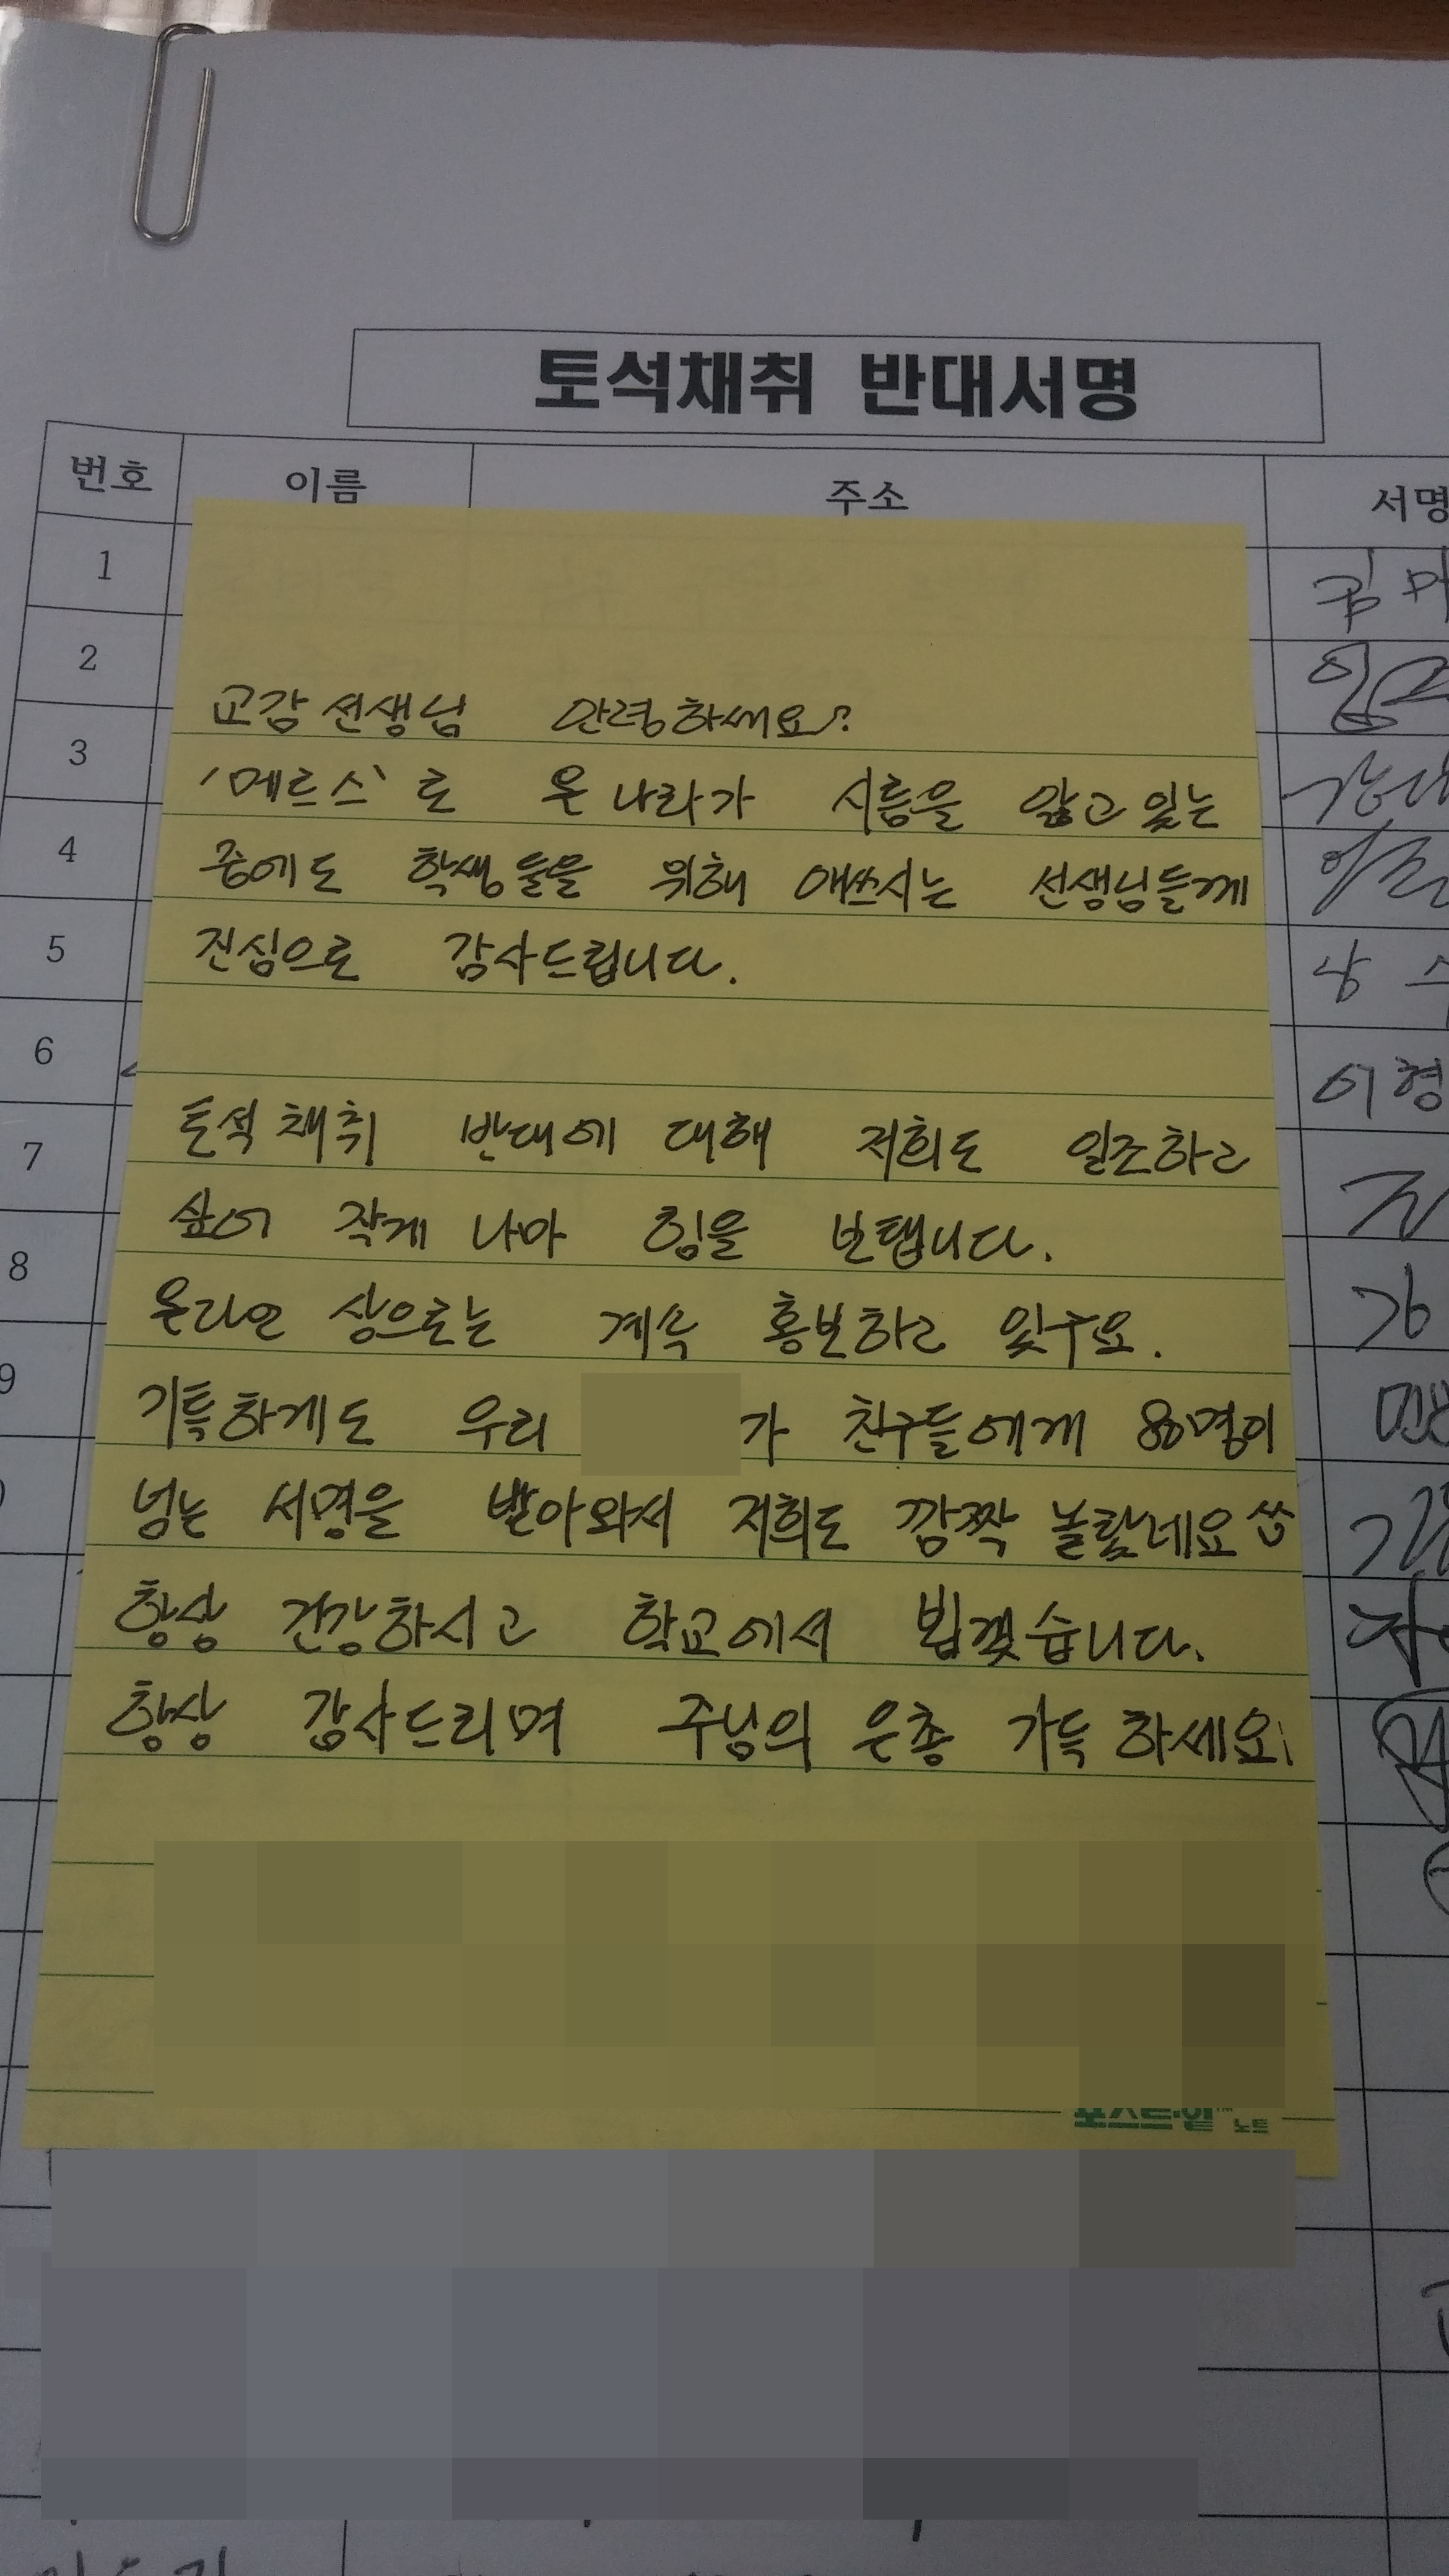 토석채취 반대서명
번호 이름 주소 서명
1
2
3
4
5
6
7
8
9
교감 선생님 안녕하세요?
'메르스'로 온 나라가 시름을 앓고 있는
중에도 학생들을 위해 애쓰시는 선생님들께
진심으로 감사드립니다.
토석 채취 반대에 대해 저희도 일조하고
싶어 작게 나마 힘을 보탭니다.
온라인 상으로는 계속 홍보하고 있구요.
기특하게도 우리 가 친구들에게 80명이
넘는 서명을 받아와서 저희도 깜짝 놀랐네요
항상 건강하시고 학교에서 뵙겠습니다.
항상 감사드리며 주님의 은총 가득 하세요
포스트·잇™ 노트